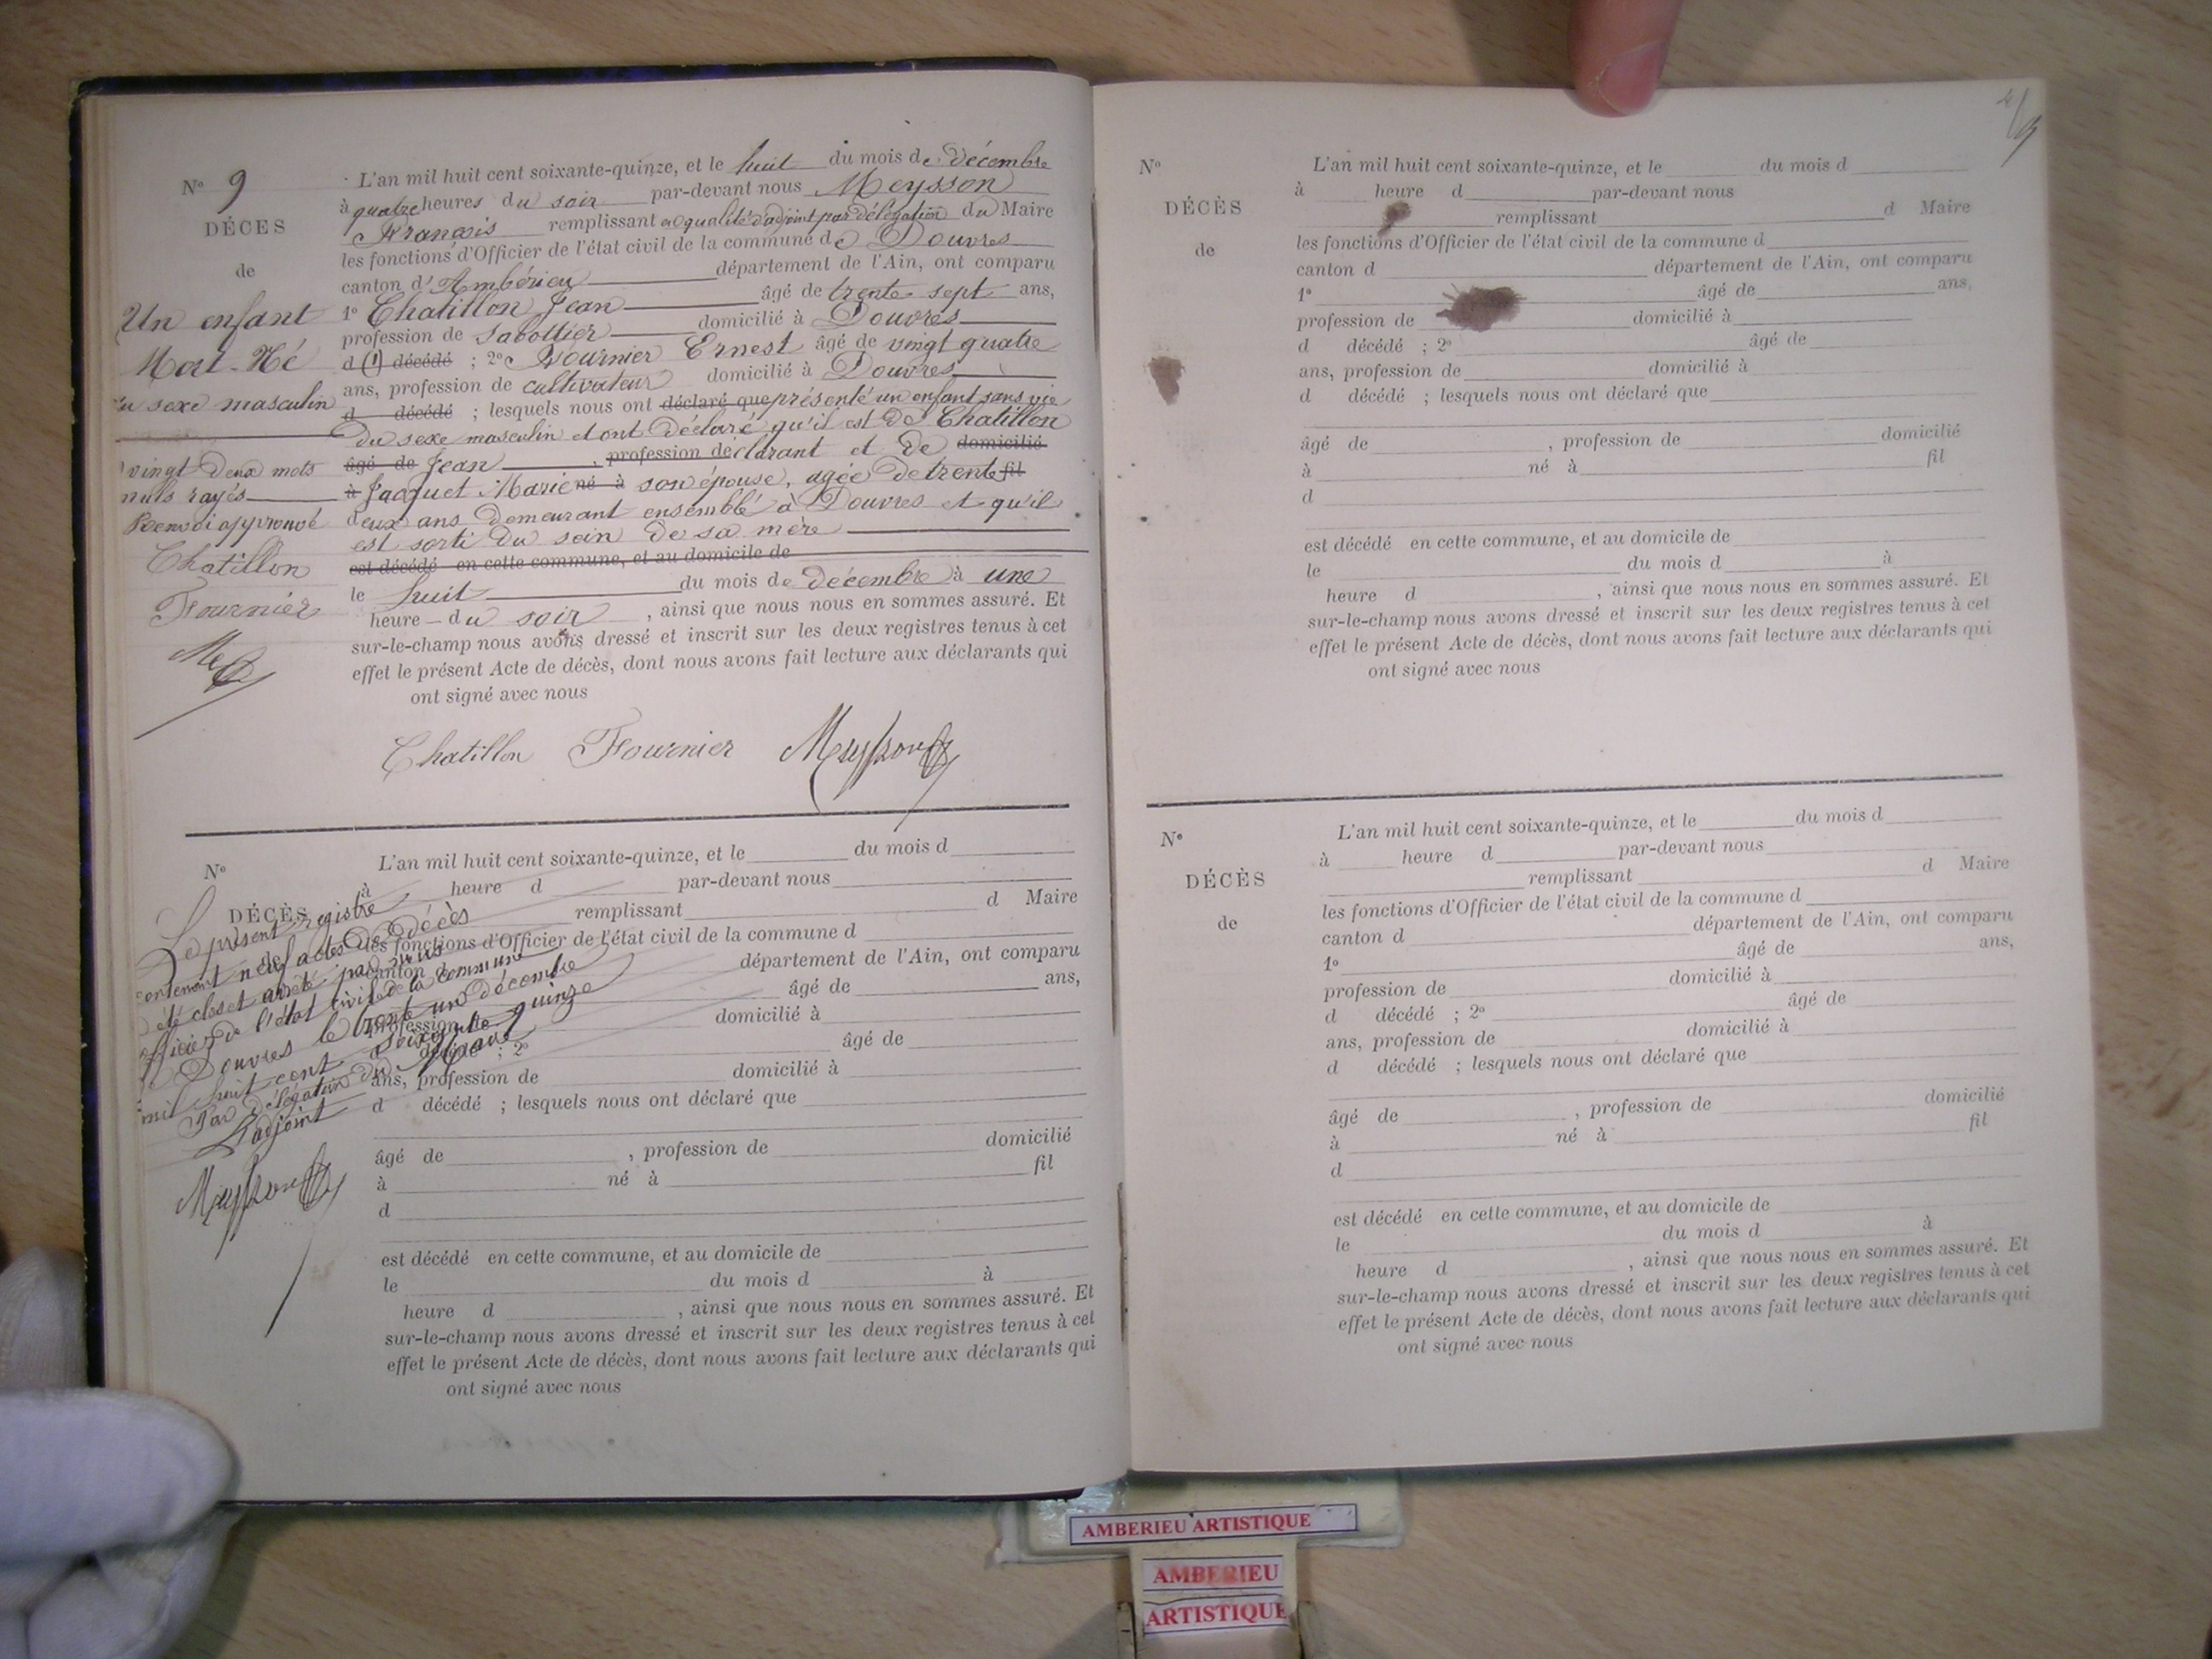 N° 9
DÉCES
de
Un enfant
Mort-Né
du sexe masculin
vingt deux mots
nuls rayés
Renvoi approuvé
Chatillon
Fournier
L'an mil huit cent soixante-quinze, et le huit du mois de décembre
à quatre heures du soir par-devant nous Meysson
François remplissant en qualité d'adjoint par délégation du Maire
les fonctions d'Officier de l'état civil de la commune de Douvres
canton d'Ambérieu département de l'Ain, ont comparu
1° Chatillon Jean âgé de trente sept ans,
profession de Sabottier domicilié à Douvres
d (1) décédé ; 2° Fournier Ernest âgé de vingt quatre
ans, profession de cultivateur domicilié à Douvres
d décédé ; lesquels nous ont déclaré que présenté un enfant sans vie
du sexe masculin et ont déclaré qu'il est de Chatillon
âgé de Jean , profession de déclarant et de domicilié
à Jacquet Marie né à son épouse, agée de trente fil
deux ans demeurant ensemble à Douvres et qu'il
est sorti du sein de sa mère
est décédé en cette commune, et au domicile de
le huit du mois de décembre à une
heure du soir , ainsi que nous nous en sommes assuré. Et
sur-le-champ nous avons dressé et inscrit sur les deux registres tenus à cet
effet le présent Acte de décès, dont nous avons fait lecture aux déclarants qui
ont signé avec nous
Chatillon Fournier Meysson
N°
DÉCÈS
de
Le présent registre
contenant neuf actes de décès
a été clos et arrêté par nous
officier de l'état civil de la commune
de Douvres le trente un décembre
mil huit cent soixante quinze
Par délégation du Maire
L'adjoint
Meysson
L'an mil huit cent soixante-quinze, et le du mois d
à heure d par-devant nous
remplissant d Maire
les fonctions d'Officier de l'état civil de la commune d
canton d département de l'Ain, ont comparu
âgé de ans,
profession de domicilié à
d décédé ; 2° âgé de
ans, profession de domicilié à
d décédé ; lesquels nous ont déclaré que
âgé de , profession de domicilié
à né à fil
d
est décédé en cette commune, et au domicile de
le du mois d à
heure d , ainsi que nous nous en sommes assuré. Et
sur-le-champ nous avons dressé et inscrit sur les deux registres tenus à cet
effet le présent Acte de décès, dont nous avons fait lecture aux déclarants qui
ont signé avec nous
N°
DÉCÈS
de
L'an mil huit cent soixante-quinze, et le du mois d
à heure d par-devant nous
remplissant d Maire
les fonctions d'Officier de l'état civil de la commune d
canton d département de l'Ain, ont comparu
1° âgé de ans,
profession de domicilié à
d décédé ; 2° âgé de
ans, profession de domicilié à
d décédé ; lesquels nous ont déclaré que
âgé de , profession de domicilié
à né à fil
d
est décédé en cette commune, et au domicile de
le du mois d à
heure d , ainsi que nous nous en sommes assuré. Et
sur-le-champ nous avons dressé et inscrit sur les deux registres tenus à cet
effet le présent Acte de décès, dont nous avons fait lecture aux déclarants qui
ont signé avec nous
N°
DÉCÈS
de
L'an mil huit cent soixante-quinze, et le du mois d
à heure d par-devant nous
remplissant d Maire
les fonctions d'Officier de l'état civil de la commune d
canton d département de l'Ain, ont comparu
1° âgé de ans,
profession de domicilié à
d décédé ; 2° âgé de
ans, profession de domicilié à
d décédé ; lesquels nous ont déclaré que
âgé de , profession de domicilié
à né à fil
d
est décédé en cette commune, et au domicile de
le du mois d à
heure d , ainsi que nous nous en sommes assuré. Et
sur-le-champ nous avons dressé et inscrit sur les deux registres tenus à cet
effet le présent Acte de décès, dont nous avons fait lecture aux déclarants qui
ont signé avec nous
AMBERIEU ARTISTIQUE
AMBERIEU
ARTISTIQUE